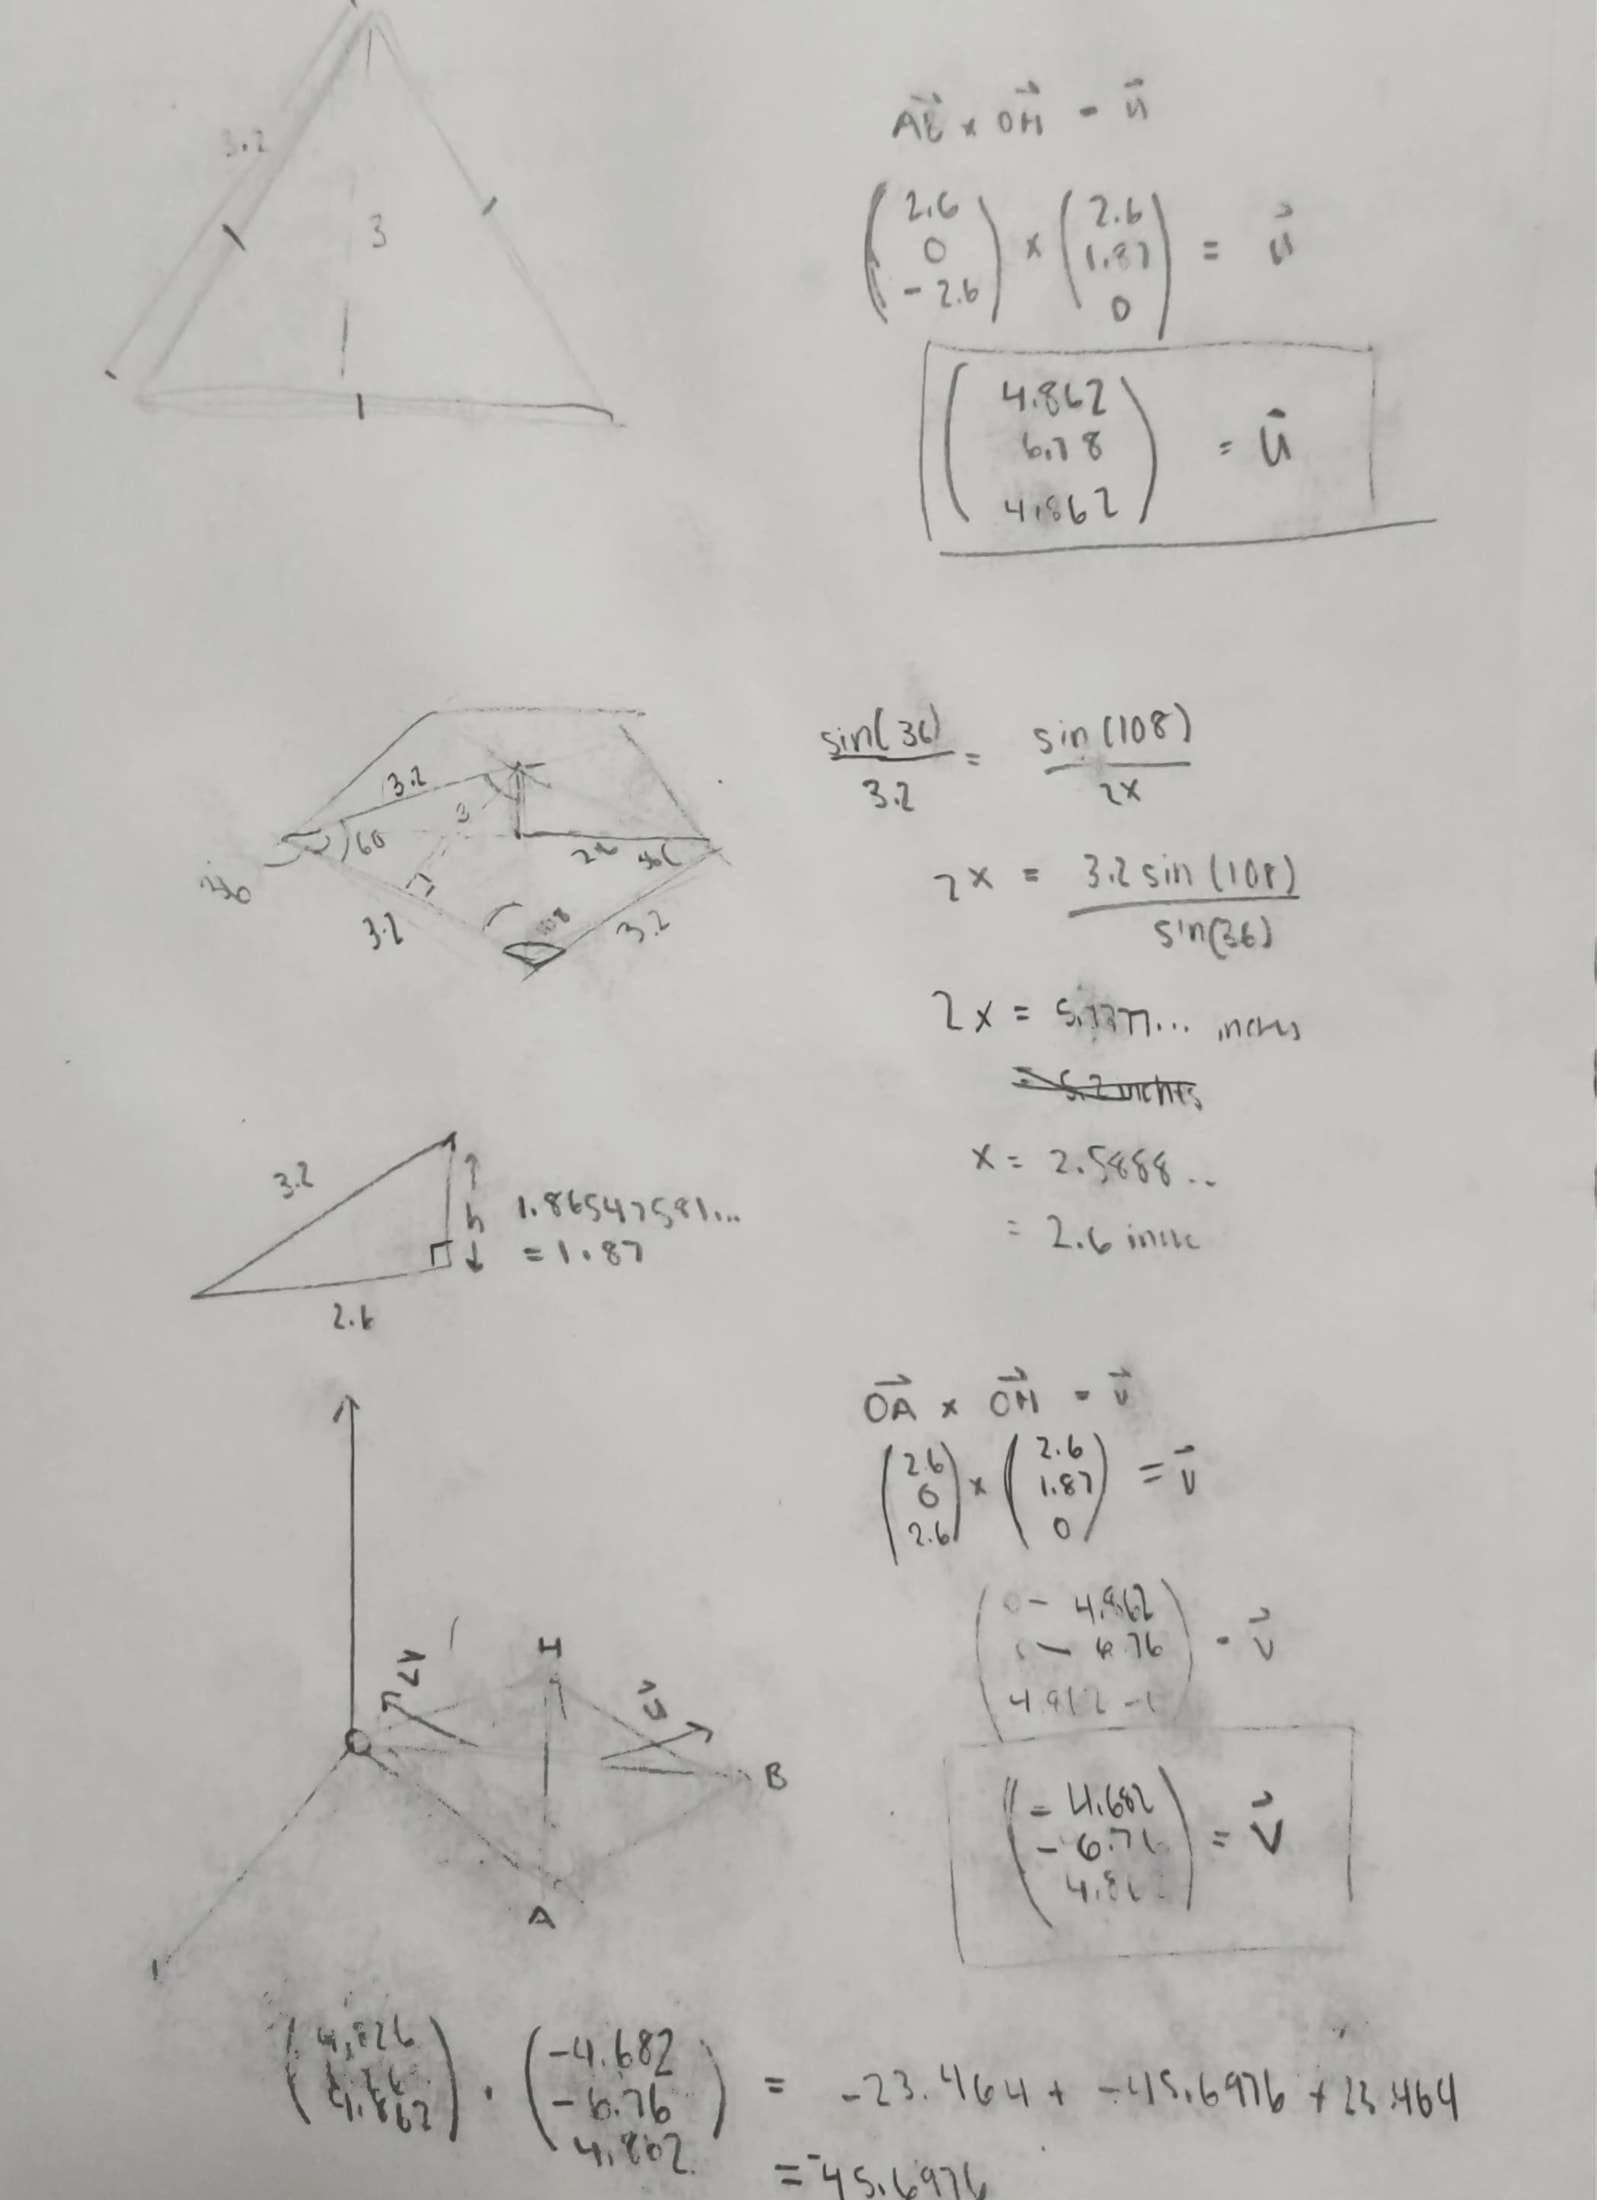 3.2
3
AB × OH = u
(2.6 0 -2.6) × (2.6 1.87 0) = u
(4.862 6.78 4.862) = u
3.2
3
60
36
3.2
108
3.2
2.6
36
sin(36)/3.2 = sin(108)/2x
2x = 3.2 sin(108)/sin(36)
2x = 5.1777... inches
= 5.2 inches
x = 2.5888..
= 2.6 inc
3.2
h
1.86547581...
= 1.87
2.6
OA × OH = v
(2.6 0 2.6) × (2.6 1.87 0) = v
(0 - 4.862 - 6.76 ) = v
(-4.682 -6.76 4.862) = v
H
v
u
O
B
A
(4.826 4.862) · (-4.682 -6.76 4.862) = -23.464 + -45.6976 + 23.464
= -45.6976